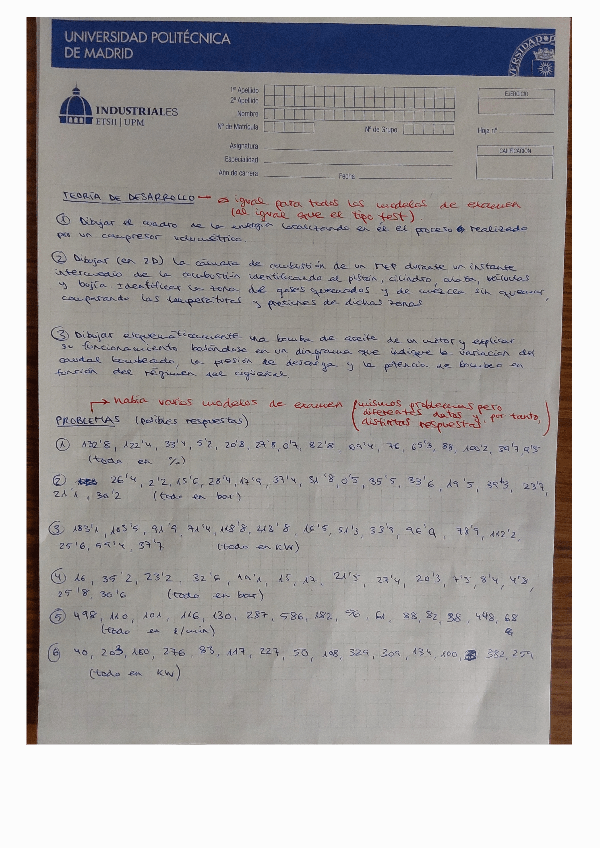 UNIVERSIDAD POLITÉCNICA
DE MADRID
INDUSTRIALES
ETSII | UPM
1º Apellido
2º Apellido
Nombre
Nº de Matrícula Nº de Grupo
Asignatura
Especialidad
Año de carrera Fecha
EJERCICIO
Hoja nº
CALIFICACIÓN
TEORÍA DE DESARROLLO → igual para todos los modelos de examen
(al igual que el tipo test)
① Dibujar el cuadro de la energía localizando en él el proceso realizado
por un compresor volumétrico.
② Dibujar (en 2D) la cámara de combustión de un MEP durante un instante
intermedio de la combustión identificando el pistón, cilindro, culata, válvulas
y bujía. Identificar la zona de gases quemados y de mezcla sin quemar,
comparando las temperaturas y presiones de dichas zonas
③ Dibujar esquemáticamente una bomba de aceite de un motor y explicar
su funcionamiento basándose en un diagrama que indique la variación del
caudal bombeado, la presión de descarga y la potencia de bombeo en
función del régimen del cigüeñal.
→ Había varios modelos de examen (mismos problemas pero
diferentes datos y, por tanto,
distintas respuestas)
PROBLEMAS (posibles respuestas)
① 132'8, 122'4, 33'4, 5'2, 20'8, 27'8, 0'7, 82'8, 76, 65'3, 88, 100'2, 39'7, 9'5
(todo en %)
② 26'4, 2'2, 15'6, 28'4, 17'9, 37'4, 31'8, 0'5, 35'5, 33'6, 19'5, 23'7,
21'1, 30'2 (todo en bar)
③ 183'1, 103'5, 91'9, 71'4, 118'8, 413'8, 16'5, 51'3, 33'9, 78'9, 112'2,
25'6, 59'4, 37'7 (todo en kW)
④ 16, 35'2, 23'2, 32'6, 13, 17, 21'5, 27'4, 20'3, 7'3, 8'4, 4'3,
25'8, 30'6 (todo en bar)
⑤ 498, 110, 101, 116, 130, 287, 586, 182, 56, 61, 38, 82, 448, 68
(todo en l/min)
⑥ 40, 203, 160, 276, 83, 117, 227, 50, 108, 329, 309, 134, 100, 382, 251
(todo en kW)